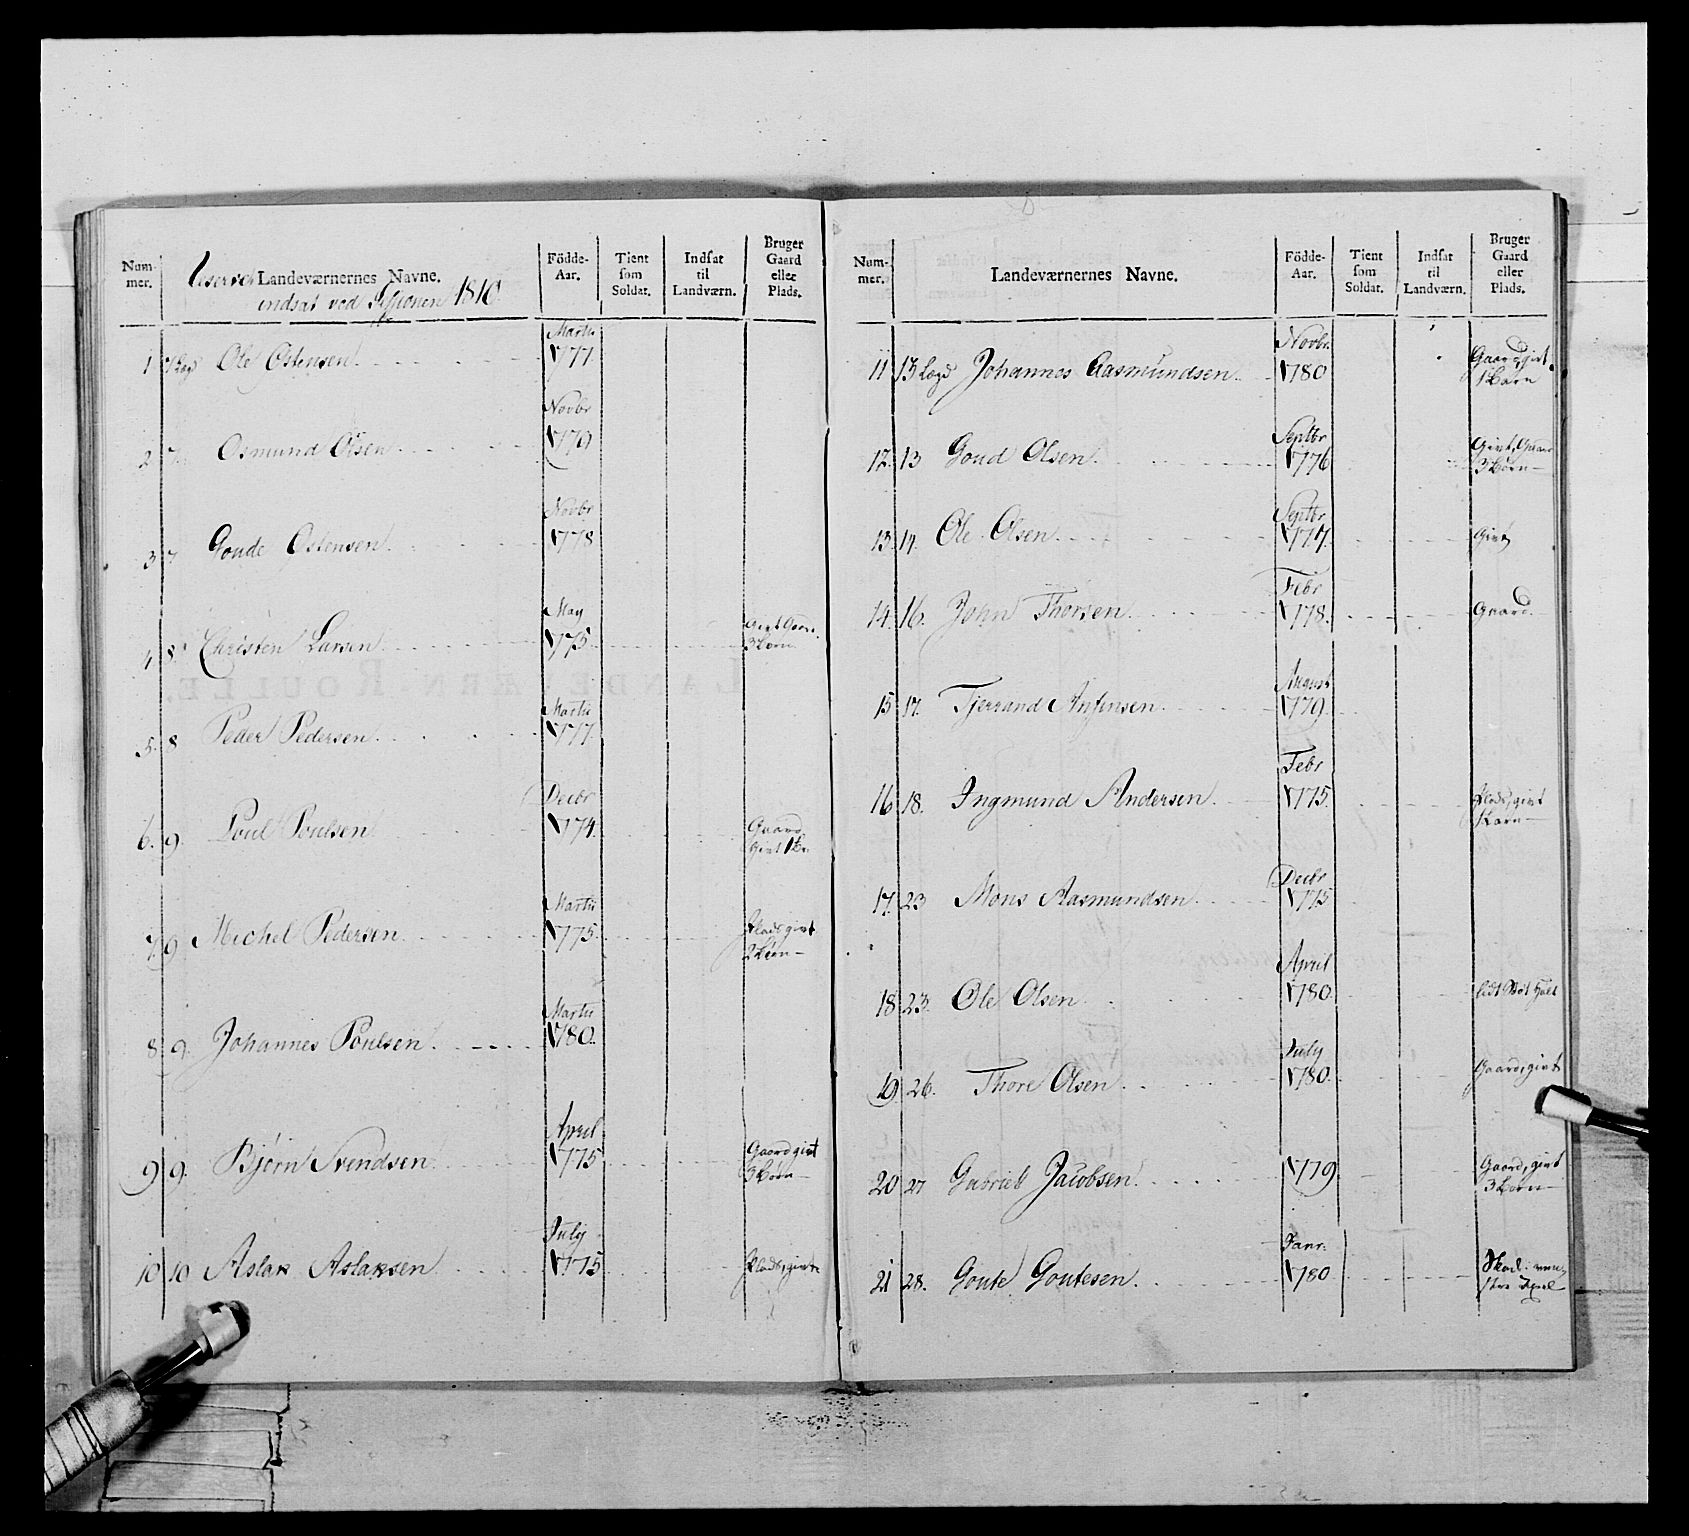 Num-
mer.
Landeværnernes Navne.
indsat ved Sessionen 1810.
Födde-
Aar.
Tient
som
Soldat.
Indsat
til
Landværn.
Bruger
Gaard
eller
Plads.
1 7 Lægd Ole Ostensen. Martii 1777
2 7. Osmund Olsen Novbr 1779
3 7 Goude Ostensen. Novbr 1778
4 8. Christen Larsen May 1775 Givt Gaard. 3 Børn
5. 8 Peder Pedersen. Martii 1777.
6. 9. Poul Poulsen Decbr 1774. Gaard, Givt 1 B.
7. 9 Michel Pedersen Martii 1775 Plads givt 2 Børn
8 9. Johannes Poulsen. Martii 1780.
9 9. Bjørn Svendsen April 1775 Gaard givt 3 Børn
10 10 Aslak Aslaksen July 1775 Plads, givt
Num-
mer.
Landeværnernes Navne.
Födde-
Aar.
Tient
som
Soldat.
Indsat
til
Landværn.
Bruger
Gaard
eller
Plads.
11 13 Lægd Johannes Aasmundsen. Novbr. 1780 Gaard, givt. 1 Barn
12. 13 Goud Olsen. Septbr 1776 Givt, Gaard 3 Børn
13 14. Ole Olsen. Septbr 1777. Givt
14. 16. John Thorsen. Febr 1778. Gaard.
15 17. Tjerrand Anfinsen. August 1779
16 18. Ingmund Andersen. Febr 1775. Plads, givt 1 Barn
17. 23 Mons Aasmundsen. Decbr 1775
18 23. Ole Olsen April 1780.
19 26. Thore Olsen July 1780. Gaard, givt
20 27 Gabriell Jacobsen. 1779. Gaard, givt 3 Børn
21 28. Goute Goutesen. Janr. 1780